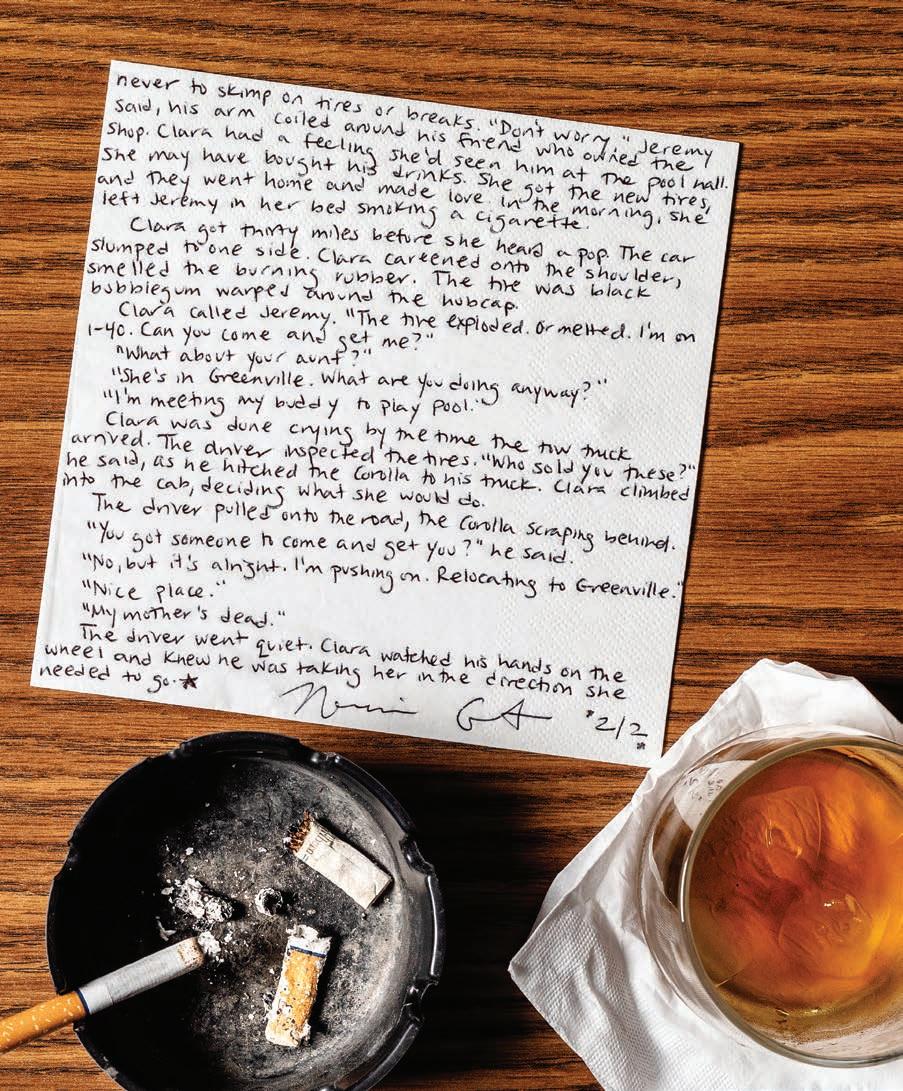 never to skimp on tires or breaks. "Don't worry," Jeremy
said, his arm coiled around his friend who owned the
shop. Clara had a feeling she'd seen him at the pool hall.
She may have bought his drinks. She got the new tires,
and they went home and made love. In the morning, she
left Jeremy in her bed smoking a cigarette.
Clara got thirty miles before she heard a pop. The car
slumped to one side. Clara careened onto the shoulder,
smelled the burning rubber. The tire was black
bubblegum warped around the hubcap.
Clara called Jeremy. "The tire exploded. Or melted. I'm on
I-40. Can you come and get me?"
"What about your aunt?"
"She's in Greenville. What are you doing anyway?"
"I'm meeting my buddy to play pool."
Clara was done crying by the time the tow truck
arrived. The driver inspected the tires. "Who sold you these?"
he said, as he hitched the Corolla to his truck. Clara climbed
into the cab, deciding what she would do.
The driver pulled onto the road, the Corolla scraping behind.
"You got someone to come and get you?" he said.
"No, but it's alright. I'm pushing on. Relocating to Greenville."
"Nice place."
"My mother's dead."
The driver went quiet. Clara watched his hands on the
wheel and knew he was taking her in the direction she
needed to go.★
*2/2*